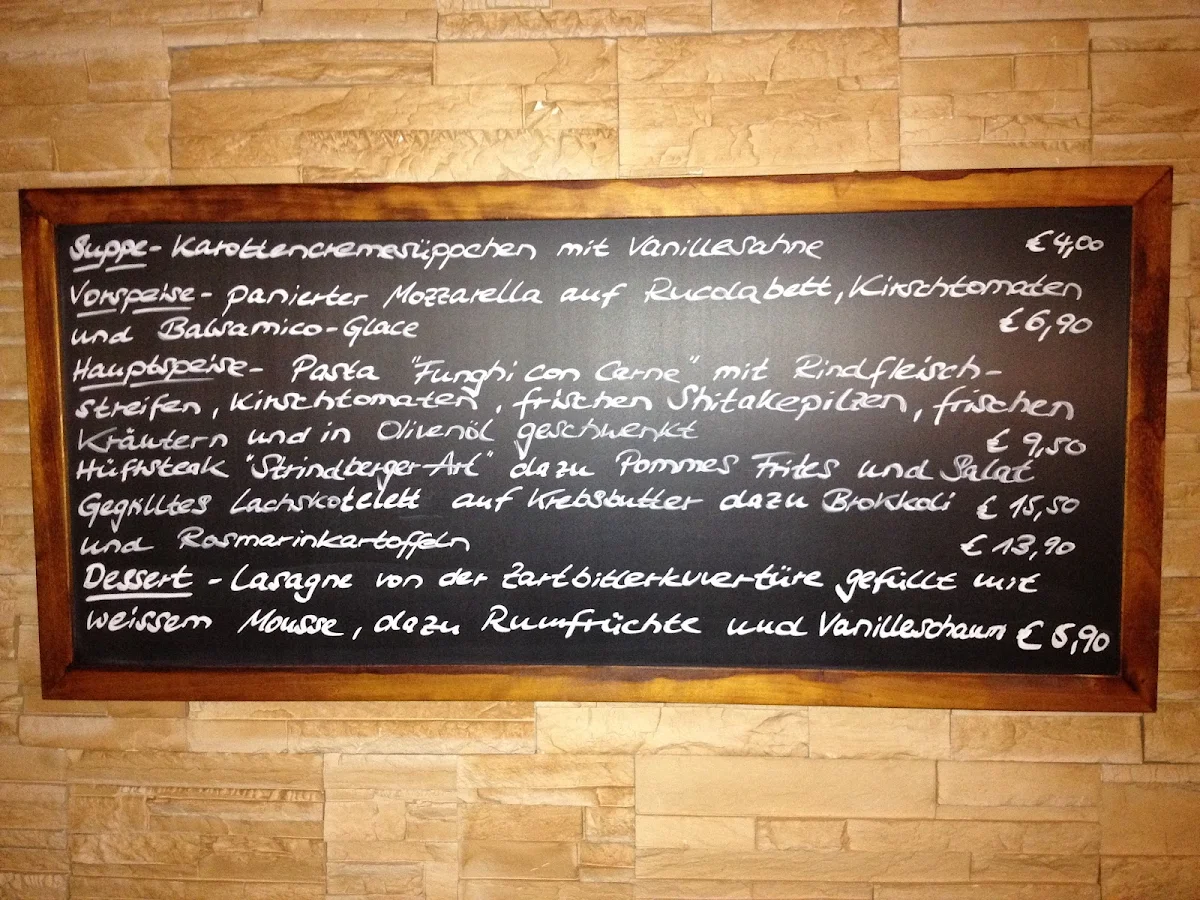 Suppe - Karottencremesüppchen mit Vanillesahne €4,00
Vorspeise - panierter Mozzarella auf Rucolabett, Kirschtomaten
und Balsamico-Glace €6,90
Hauptspeise - Pasta "Funghi con Carne" mit Rindfleisch-
streifen, Kirschtomaten, frischen Shitakepilzen, frischen
Kräutern und in Olivenöl geschwenkt € 9,50
Hüftsteak "Strindberger-Art" dazu Pommes Frites und Salat
Gegrilltes Lachskotelett auf Krebsbutter dazu Brokkoli € 15,50
und Rosmarinkartoffeln € 13,90
Dessert - Lasagne von der Zartbitterkuvertüre gefüllt mit
weissem Mousse, dazu Rumfrüchte und Vanilleschaum € 5,90